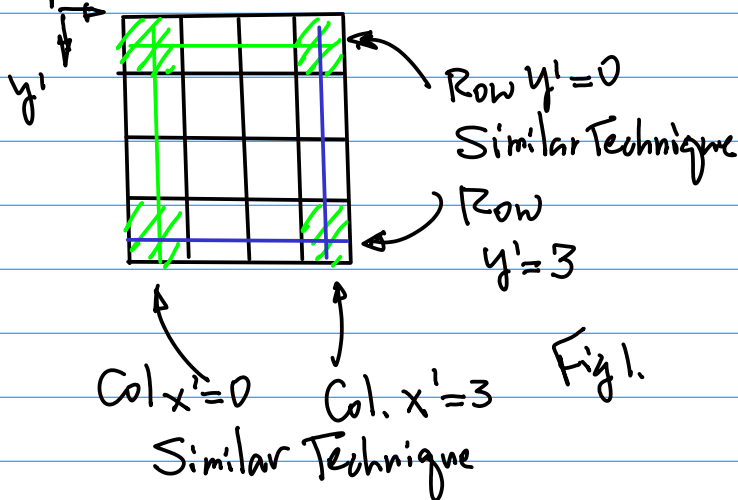 y'
Row y'=0
Similar Technique
Row
y'=3
Col x'=0 Col. x'=3
Similar Technique
Fig 1.